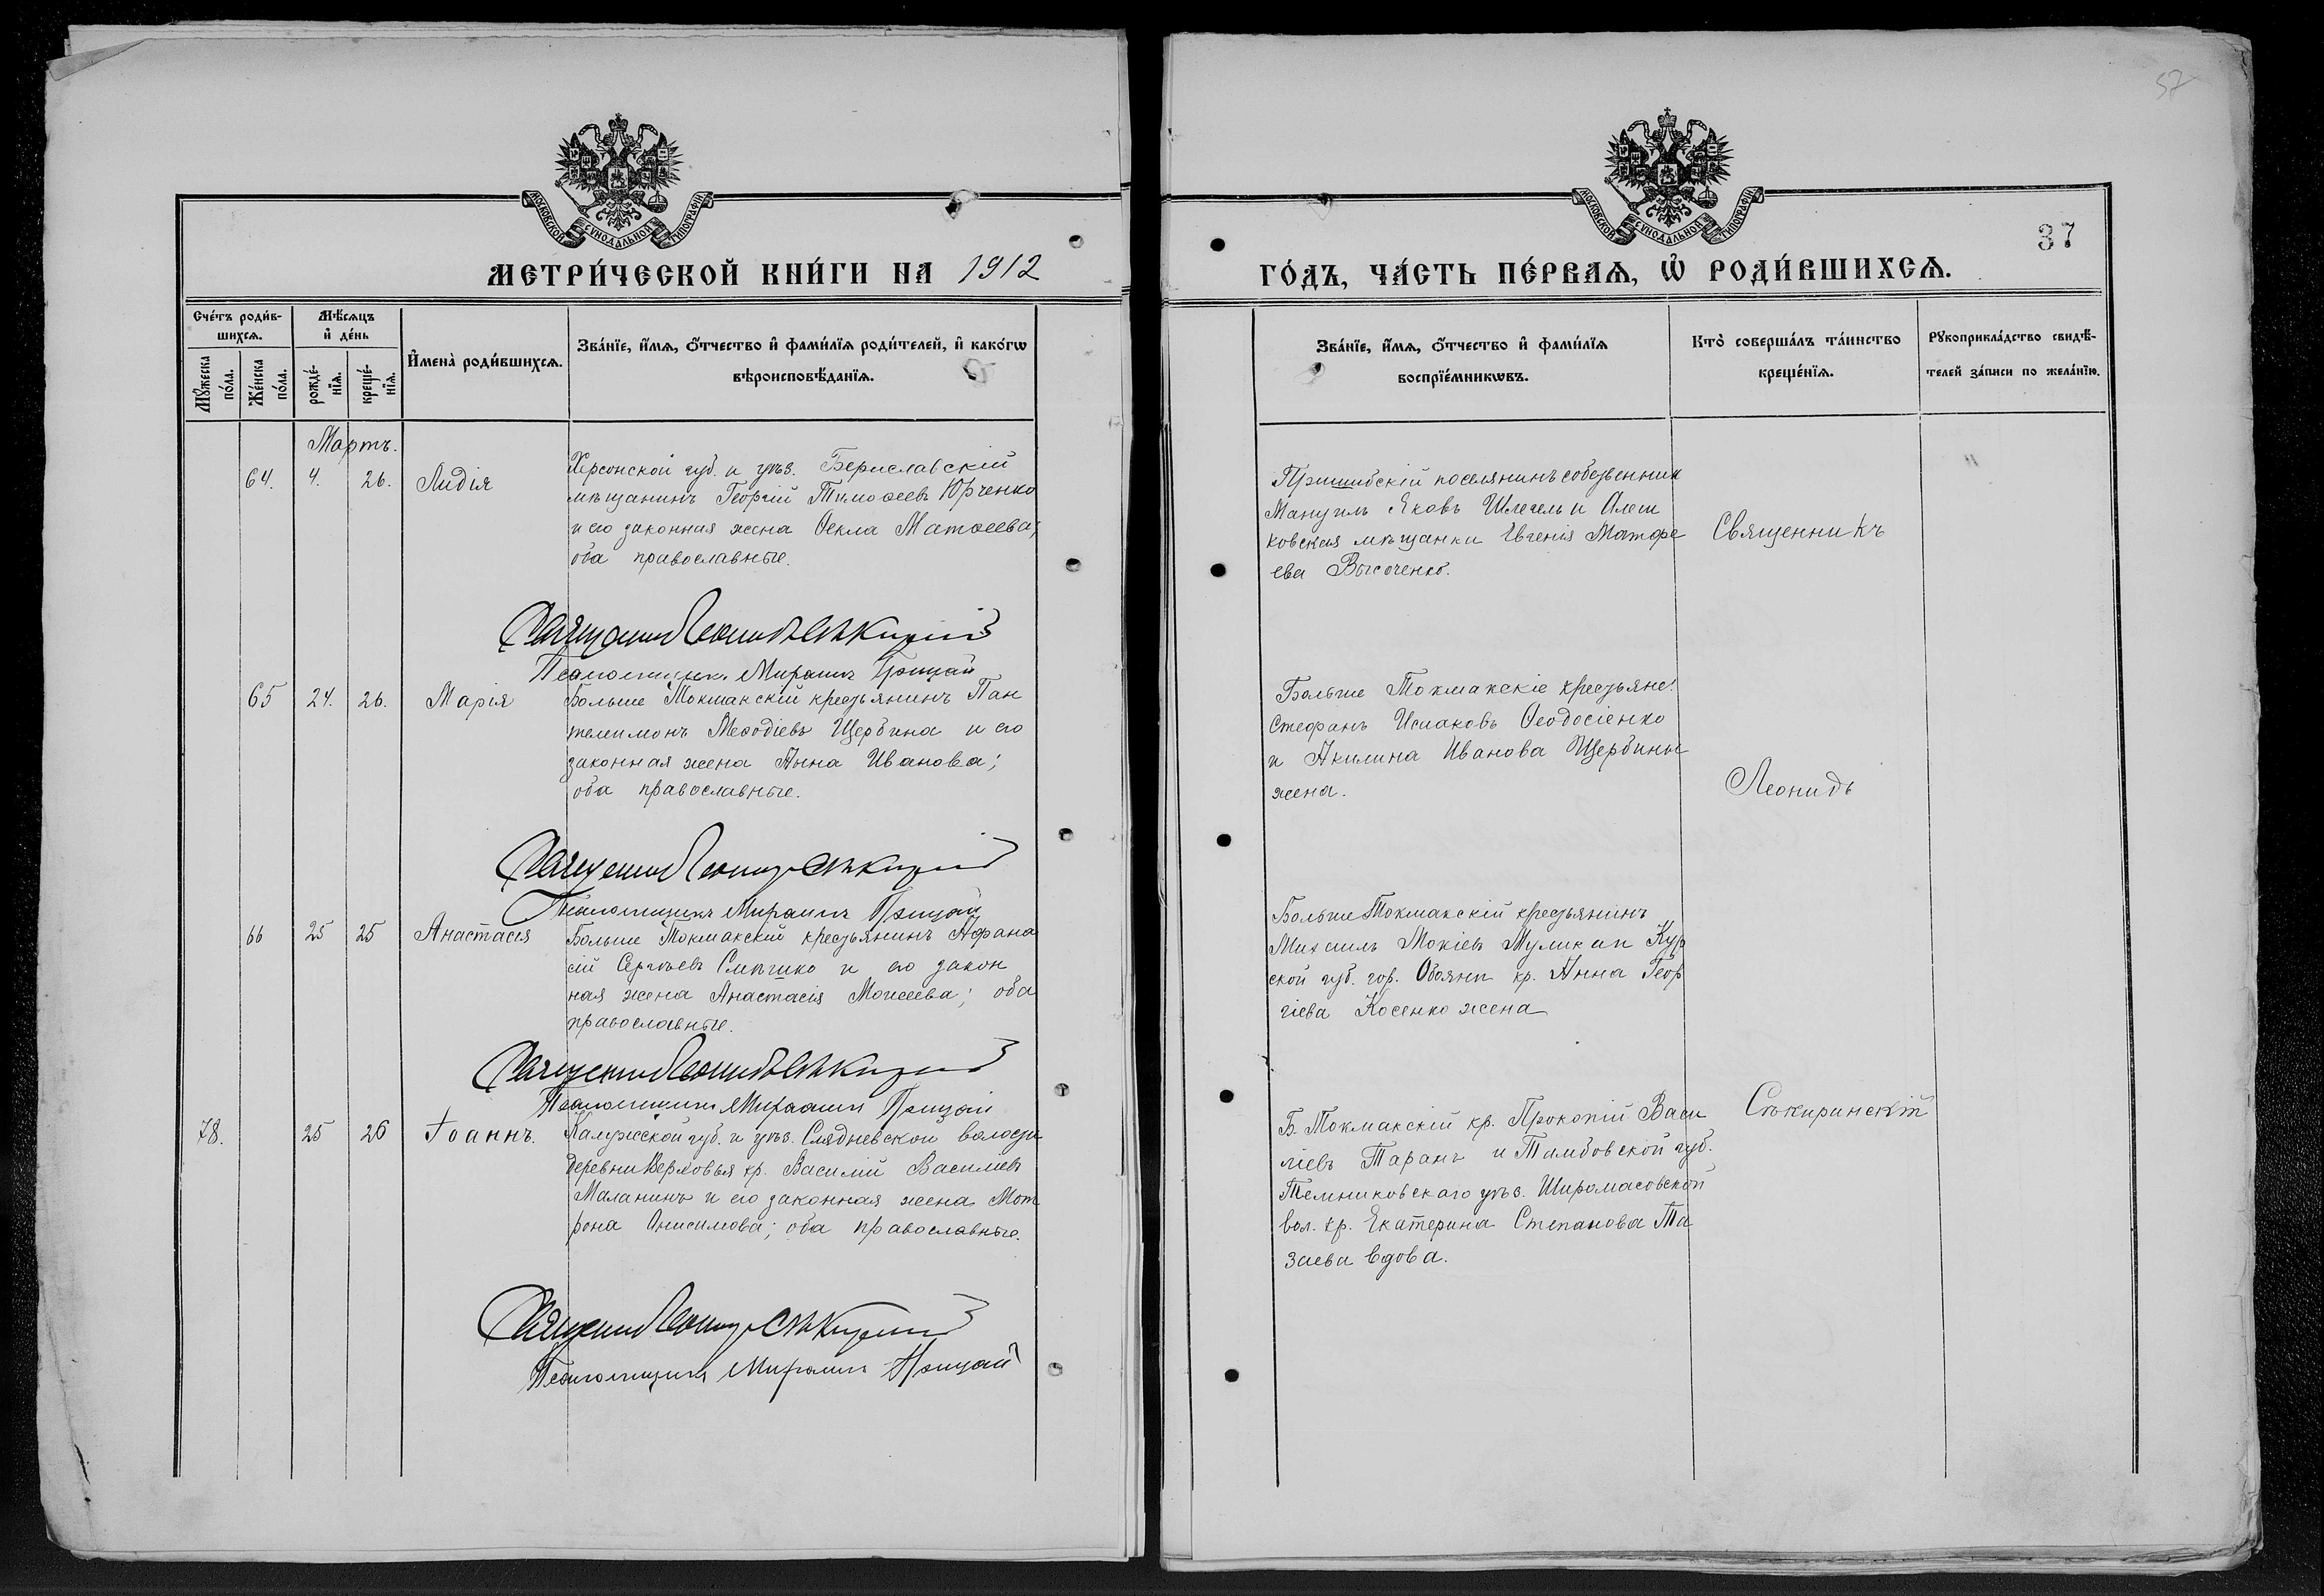 57
МОСКОВСКОЙ СУНОДАЛЬНОЙ ТИПОГРАФІИ
МЕТРИ́ЧЕСКОЙ КНИ́ГИ НА 1912
Сче́тъ роди́в-
шихсѧ.
Мѣ́сѧцъ
и҆ де́нь
Мꙋ́жеска
по́ла.
Же́нска
по́ла.
рожде́-
нїѧ.
креще́-
нїѧ.
И҆мена̀ роди́вшихсѧ.
Зва́нїе, и҆́мѧ, ѻ҆́тчество и҆ фами́лїѧ роди́телей, и҆ како́гѡ
вѣроисповѣ́данїѧ.
Мартъ.
64. 4. 26. Лидія
Херсонской губ. и уѣз. Бериславскій
мѣщанинъ Георгій Тимоѳеевъ Юрченко
и его законная жена Ѳекла Матѳеева;
оба православные.
Псаломщикъ
65 24. 26. Марія
Больше Токмакскій крестьянинъ Пан
телеимонъ Меѳодіевъ Щербина и его
законная жена Анна Иванова;
оба православные.
Псаломщикъ
66 25 25 Анастасія
Больше Токмакскій крестьянинъ Афана
сій Сергѣевъ и его закон
ная жена Анастасія Моисеева; оба
православные.
Псаломщикъ
78. 25 26 Іоаннъ.
Калужской губ. и уѣз. волости
деревни Верховья кр. Василій Василіевъ
Маланинъ и его законная жена Мот
рона Онисимова; оба православные.
Псаломщикъ
МОСКОВСКОЙ СУНОДАЛЬНОЙ ТИПОГРАФІИ
37
ГО́ДЪ, ЧА́СТЬ ПЕ́РВАѦ, Ѡ҆ РОДИ́ВШИХСѦ.
Зва́нїе, и҆́мѧ, ѻ҆́тчество и҆ фами́лїѧ
воспрїе́мникѡвъ.
Кто̀ соверша́лъ та́инство
креще́нїѧ.
Рꙋкоприкла́дство свидѣ́-
телей за́писи по жела́нїю.
Пришибскій поселянинъ собственник
Мануилъ Яковъ Шлегель и Алеш
ковская мѣщанка Евгенія Матфе
ева Высоченко.
Священникъ
Больше Токмакскіе крестьяне:
Стефанъ Исааковъ Ѳеодосіенко
и Акилина Иванова Щербины
жена.
Леонидъ
Больше Токмакскій крестьянинъ
Михаилъ Мокіевъ и Кур
ской губ. гор. Обояни кр. Анна Геор
гіева Косенко жена
Б. Токмакскій кр. Прокопій Васи
ліевъ Таранъ и Тамбовской губ.
Темниковскаго уѣз. Широмасовской
вол. кр. Екатерина Степанова Та
заева вдова.
Сѣкиринскій